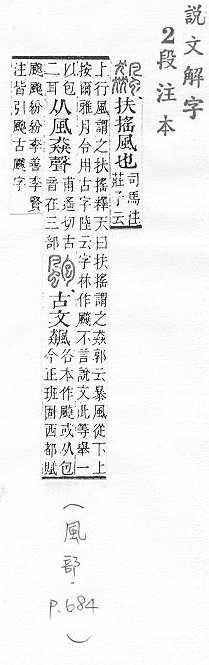 說文解字
2段注本
扶搖風也
司馬注
莊子云
上行風謂之扶搖釋天曰扶搖謂之猋郭云暴風從下上
按爾雅月令用古字陸云字林作飆不言說文此等舉一
以包
二耳
从風猋聲
甫遙切古
音在三部
古文飆
各本作颮或从包
今正班固西都賦
颮颮紛紛李善李賢
注皆引颮古飆字
(風部．P.684)